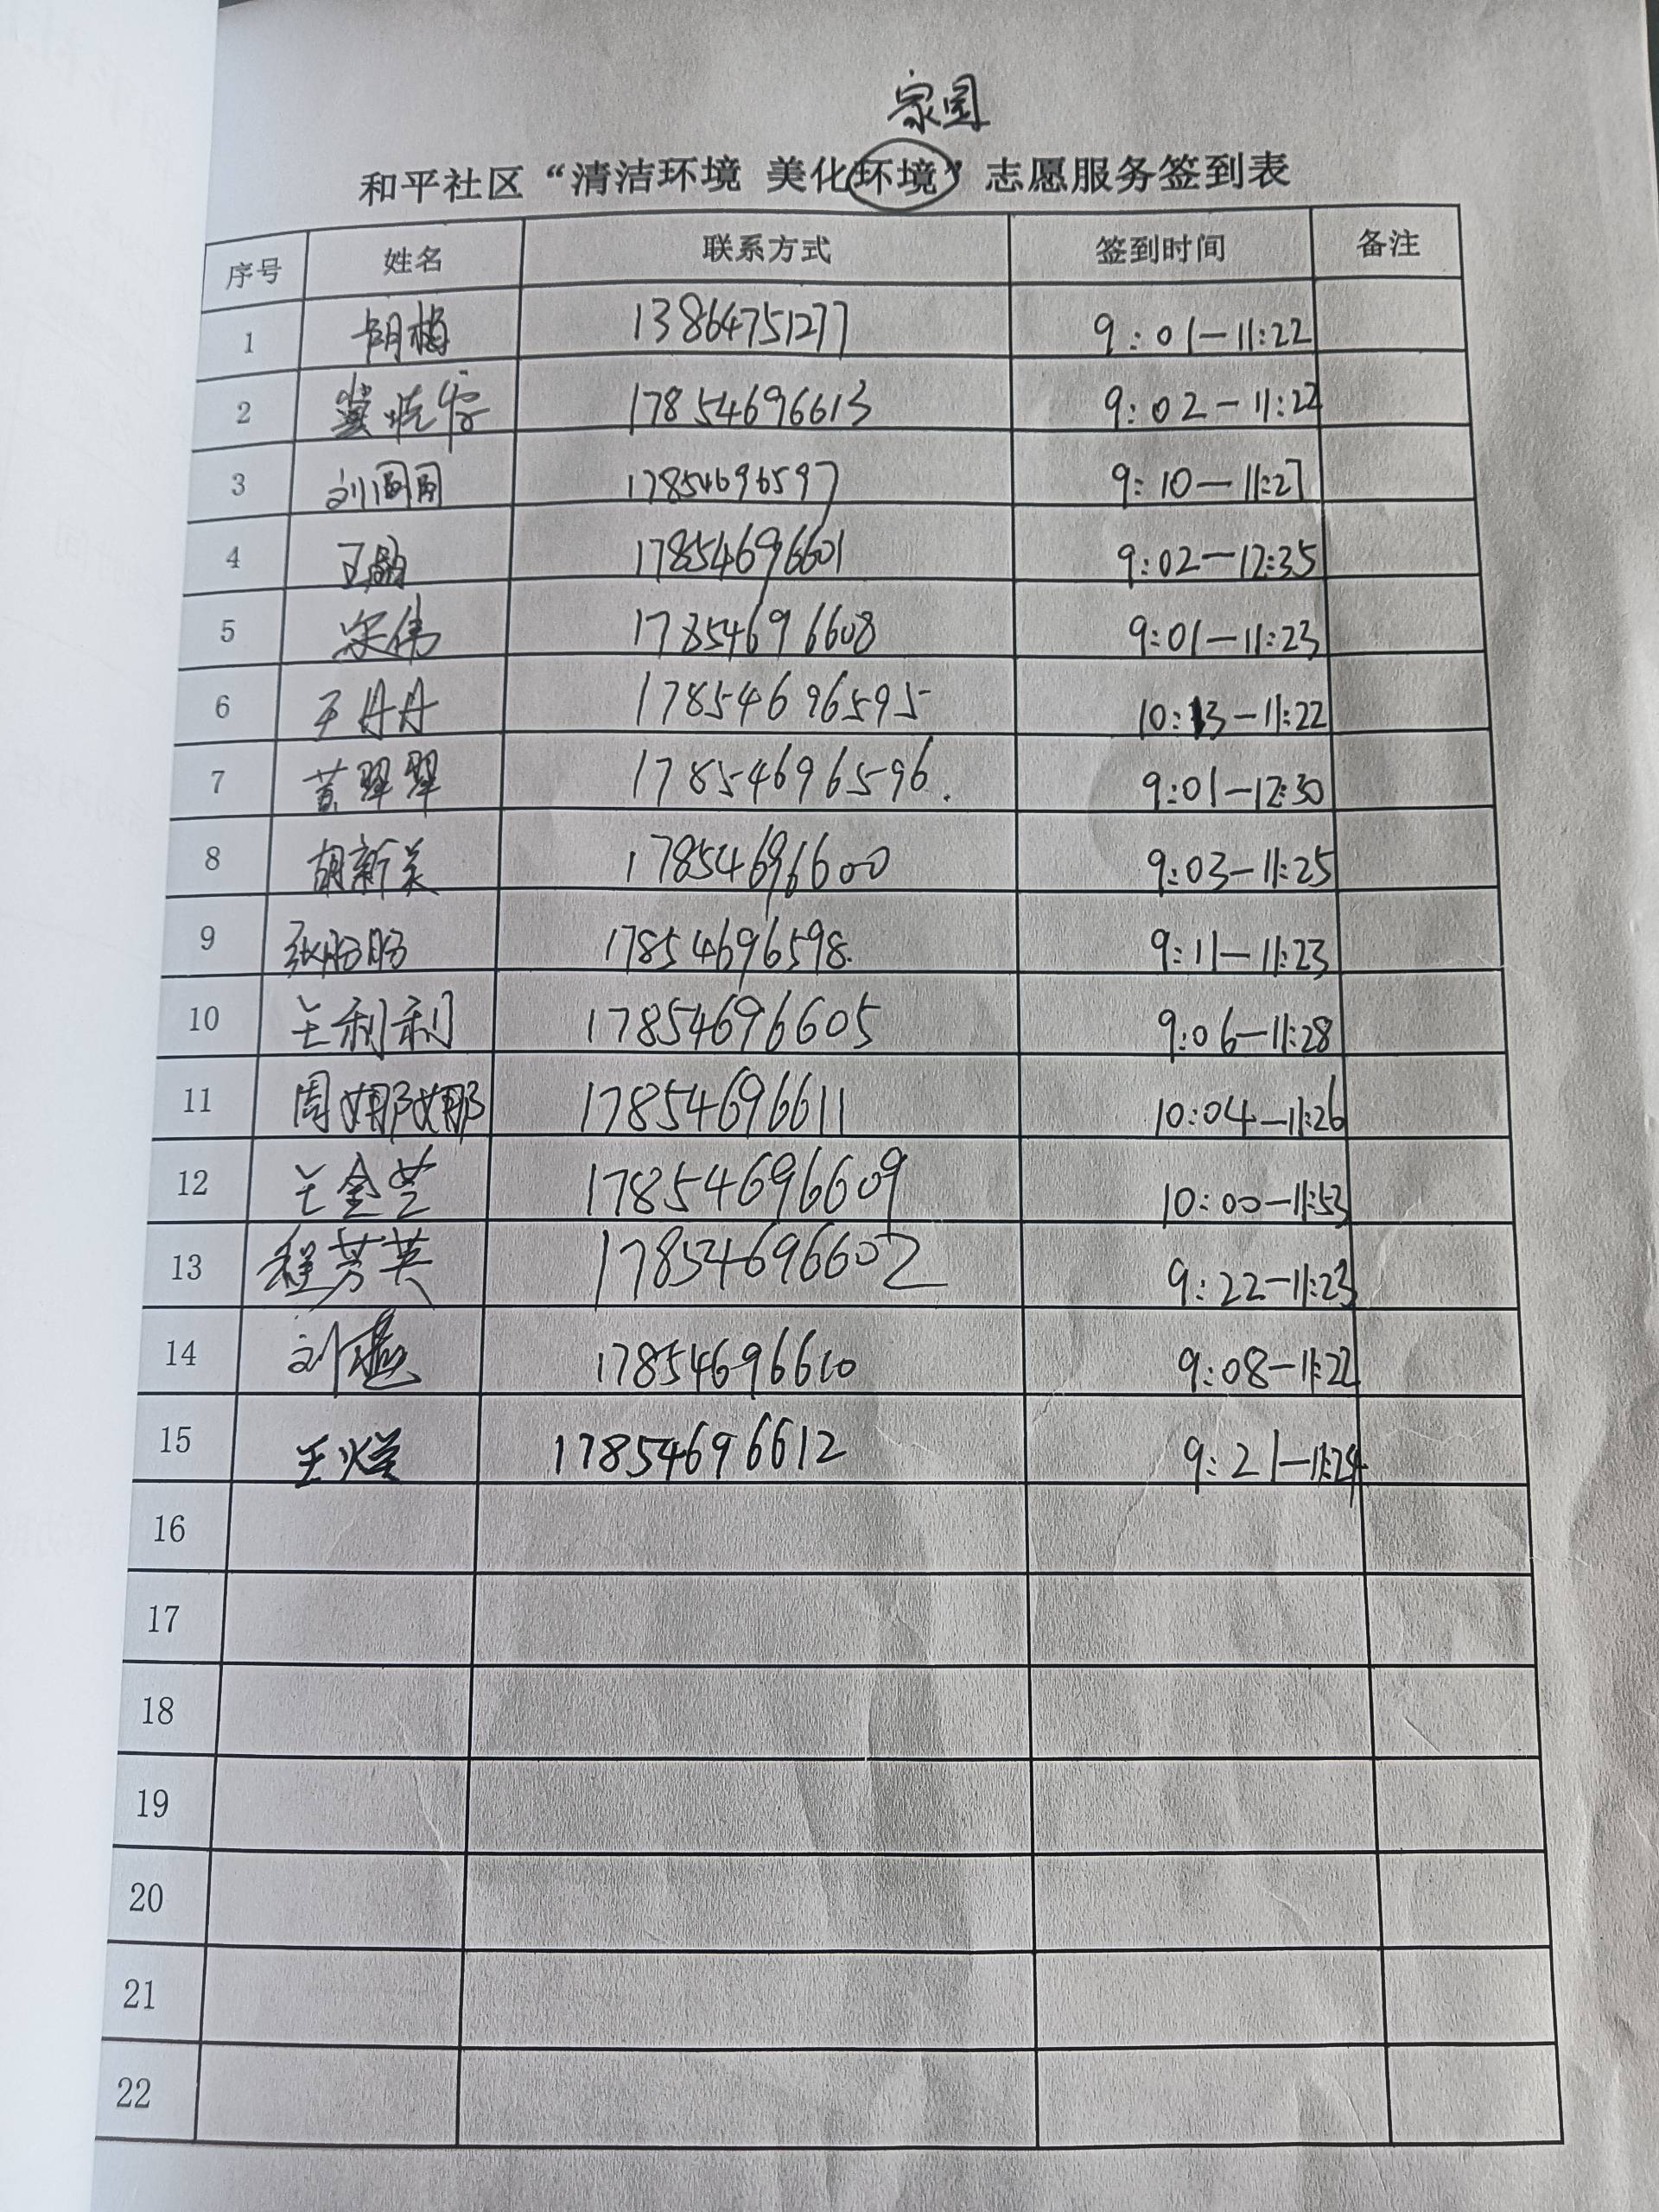 家园
和平社区“清洁环境 美化环境”志愿服务签到表
序号 姓名 联系方式 签到时间 备注
1 胡梅 13864751277 9:01-11:22
2 17854696613 9:02-11:22
3 刘园园 17854696597 9:10-11:27
4 王 17854696601 9:02-12:35
5 宋伟 17854696608 9:01-11:23
6 王丹丹 17854696595 10:13-11:22
7 黄翠翠 17854696596. 9:01-12:30
8 胡新美 17854696600 9:03-11:25
9 张盼盼 17854696598. 9:11-11:23
10 王利利 17854696605 9:06-11:28
11 周娜娜 17854696611 10:04-11:26
12 王金兰 17854696609 10:00-11:53
13 程芳英 17854696602 9:22-11:23
14 刘燕 17854696610 9:08-11:22
15 王 17854696612 9:21-11:24
16
17
18
19
20
21
22